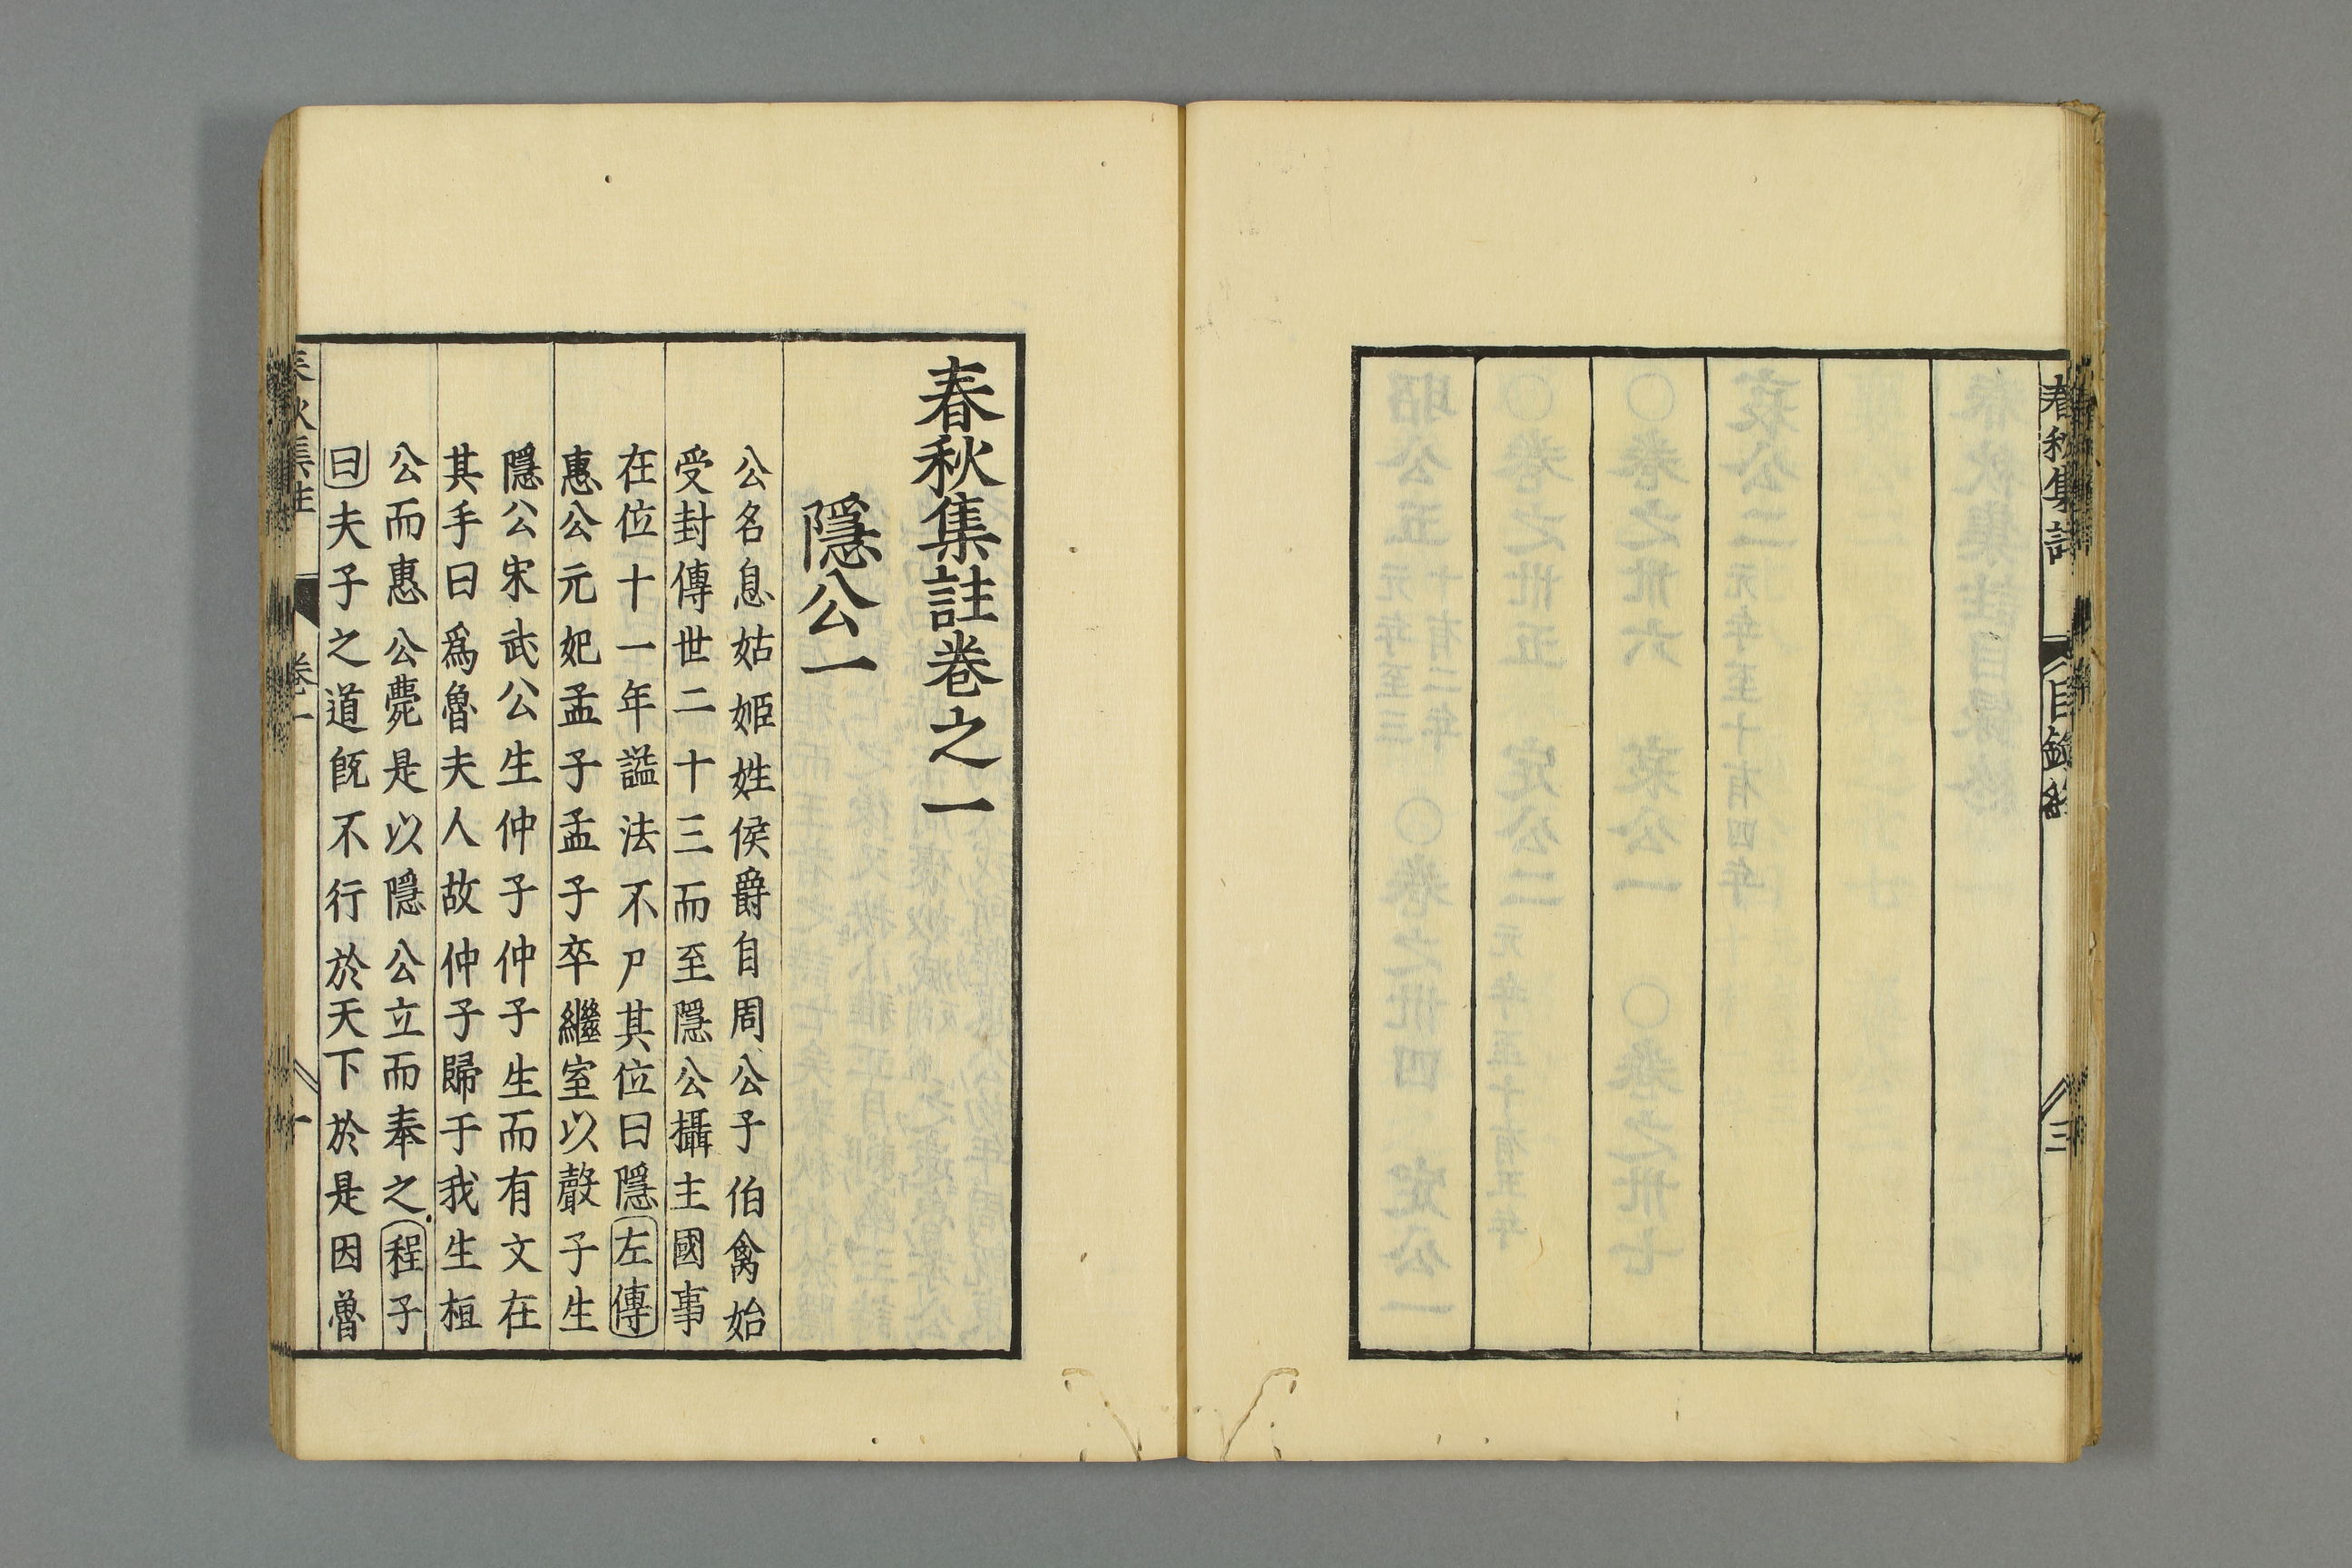 春秋集註
目錄終
三
春秋集註卷之一
隱公一
公名息姑姬姓侯爵自周公子伯禽始
受封傳世二十三而至隱公攝主國事
在位十一年謚法不尸其位曰隱左傳
惠公元妃孟子孟子卒繼室以聲子生
隱公宋武公生仲子仲子生而有文在
其手曰爲魯夫人故仲子歸于我生桓
公而惠公薨是以隱公立而奉之程子
曰夫子之道旣不行於天下於是因魯
春秋集註
卷一
一